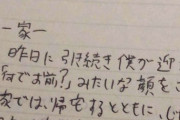 一家一
昨日に引き続き僕が迎
「何でお前?」みたいな顔をこ
家では、帰宅するとともに、心